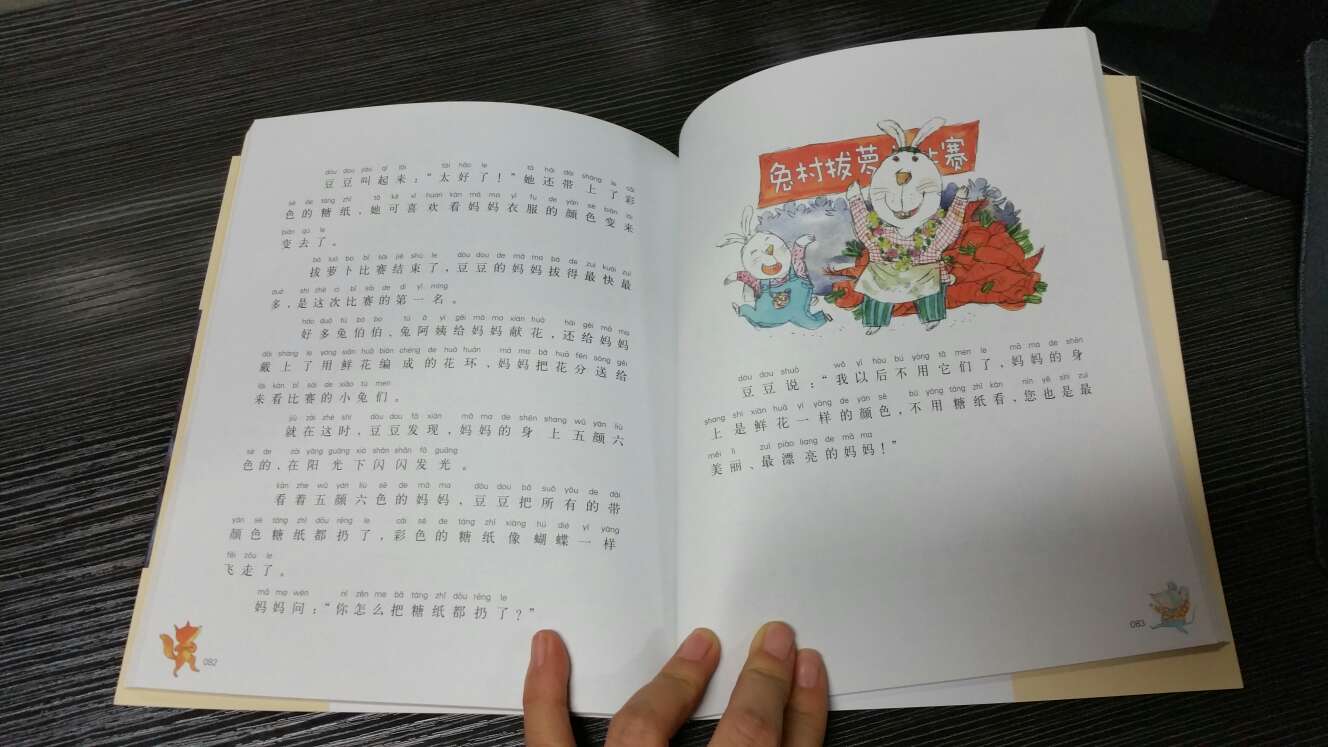 dòu dou jiào qǐ lái tài hǎo le tā hái dài shang le cǎi
豆豆叫起来：“太好了！”她还带上了彩
sè de táng zhǐ tā kě xǐ huan kàn mā ma yī fu de yán sè biàn lái
色的糖纸，她可喜欢看妈妈衣服的颜色变来
biàn qù le
变去了。
bá luó bo bǐ sài jié shù le dòu dou de mā ma bá de zuì kuài zuì
拔萝卜比赛结束了，豆豆的妈妈拔得最快最
duō shì zhè cì bǐ sài de dì yī míng
多，是这次比赛的第一名。
hǎo duō tù bó bo tù ā yí gěi mā ma xiàn huā hái gěi mā ma
好多兔伯伯、兔阿姨给妈妈献花，还给妈妈
dài shang le yòng xiān huā biān chéng de huā huán mā ma bǎ huā fēn sòng gěi
戴上了用鲜花编成的花环、妈妈把花分送给
lái kàn bǐ sài de xiǎo tù men
来看比赛的小兔们。
jiù zài zhè shí dòu dou fā xiàn mā ma de shēn shang wǔ yán liù
就在这时，豆豆发现，妈妈的身上五颜六
sè de zài yáng guāng xià shǎn shǎn fā guāng
色的，在阳光下闪闪发光。
kàn zhe wǔ yán liù sè de mā ma dòu dou bǎ suǒ yǒu de dài
看着五颜六色的妈妈，豆豆把所有的带
yán sè táng zhǐ dōu rēng le cǎi sè de táng zhǐ xiàng hú dié yí yàng
颜色糖纸都扔了，彩色的糖纸像蝴蝶一样
fēi zǒu le
飞走了。
mā ma wèn nǐ zěn me bǎ táng zhǐ dōu rēng le
妈妈问：“你怎么把糖纸都扔了？”
082
兔村拔萝 比赛
dòu dou shuō wǒ yǐ hòu bú yòng tā men le mā ma de shēn
豆豆说：“我以后不用它们了，妈妈的身
shang shì xiān huā yí yàng de yán sè bú yòng táng zhǐ kàn nín yě shì zuì
上是鲜花一样的颜色，不用糖纸看，您也是最
měi lì zuì piào liang de mā ma
美丽、最漂亮的妈妈！”
083